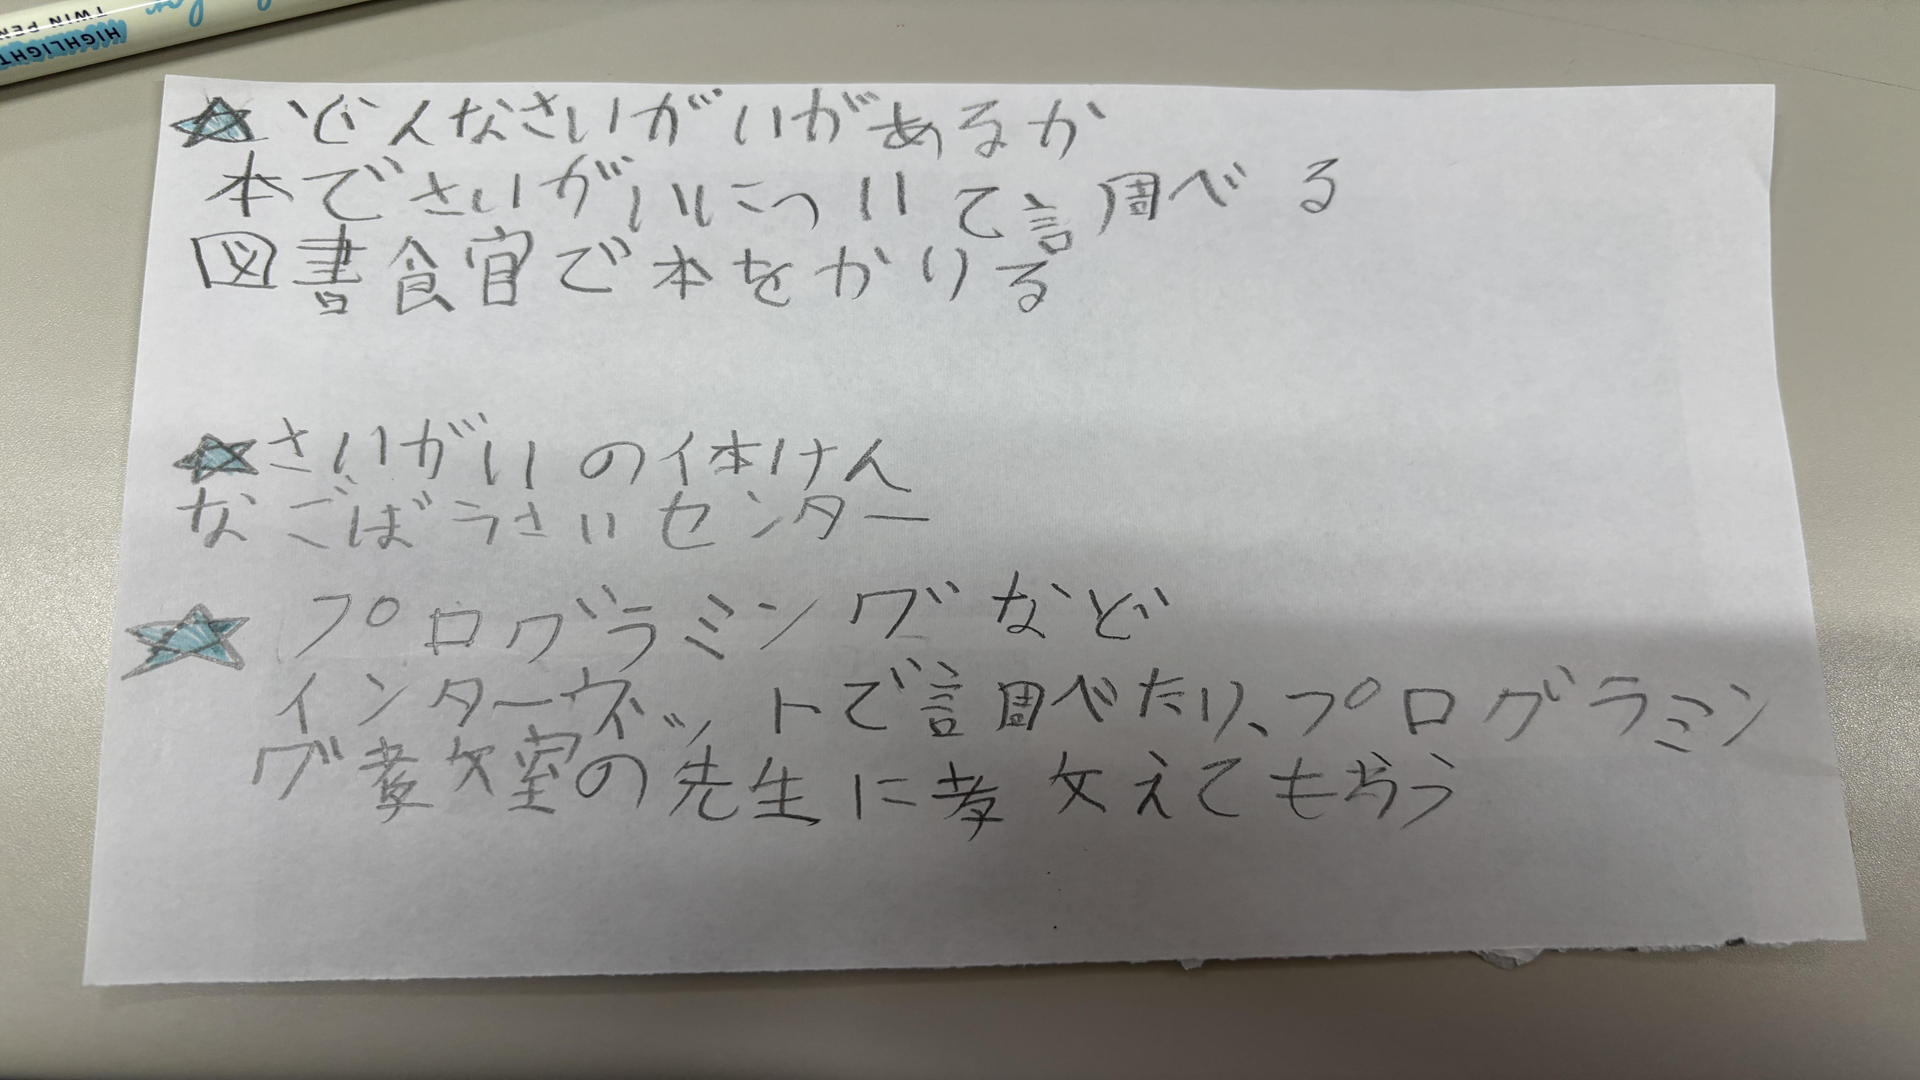 HIGHLIGHT
TWIN PEN
for
どんなさいがいがあるか
本でさいがいについて調べる
図書館で本をかりる
さいがいの体けん
なごぼうさいセンター
プログラミングなど
インターネットで調べたり、プログラミン
グ教室の先生に教えてもらう